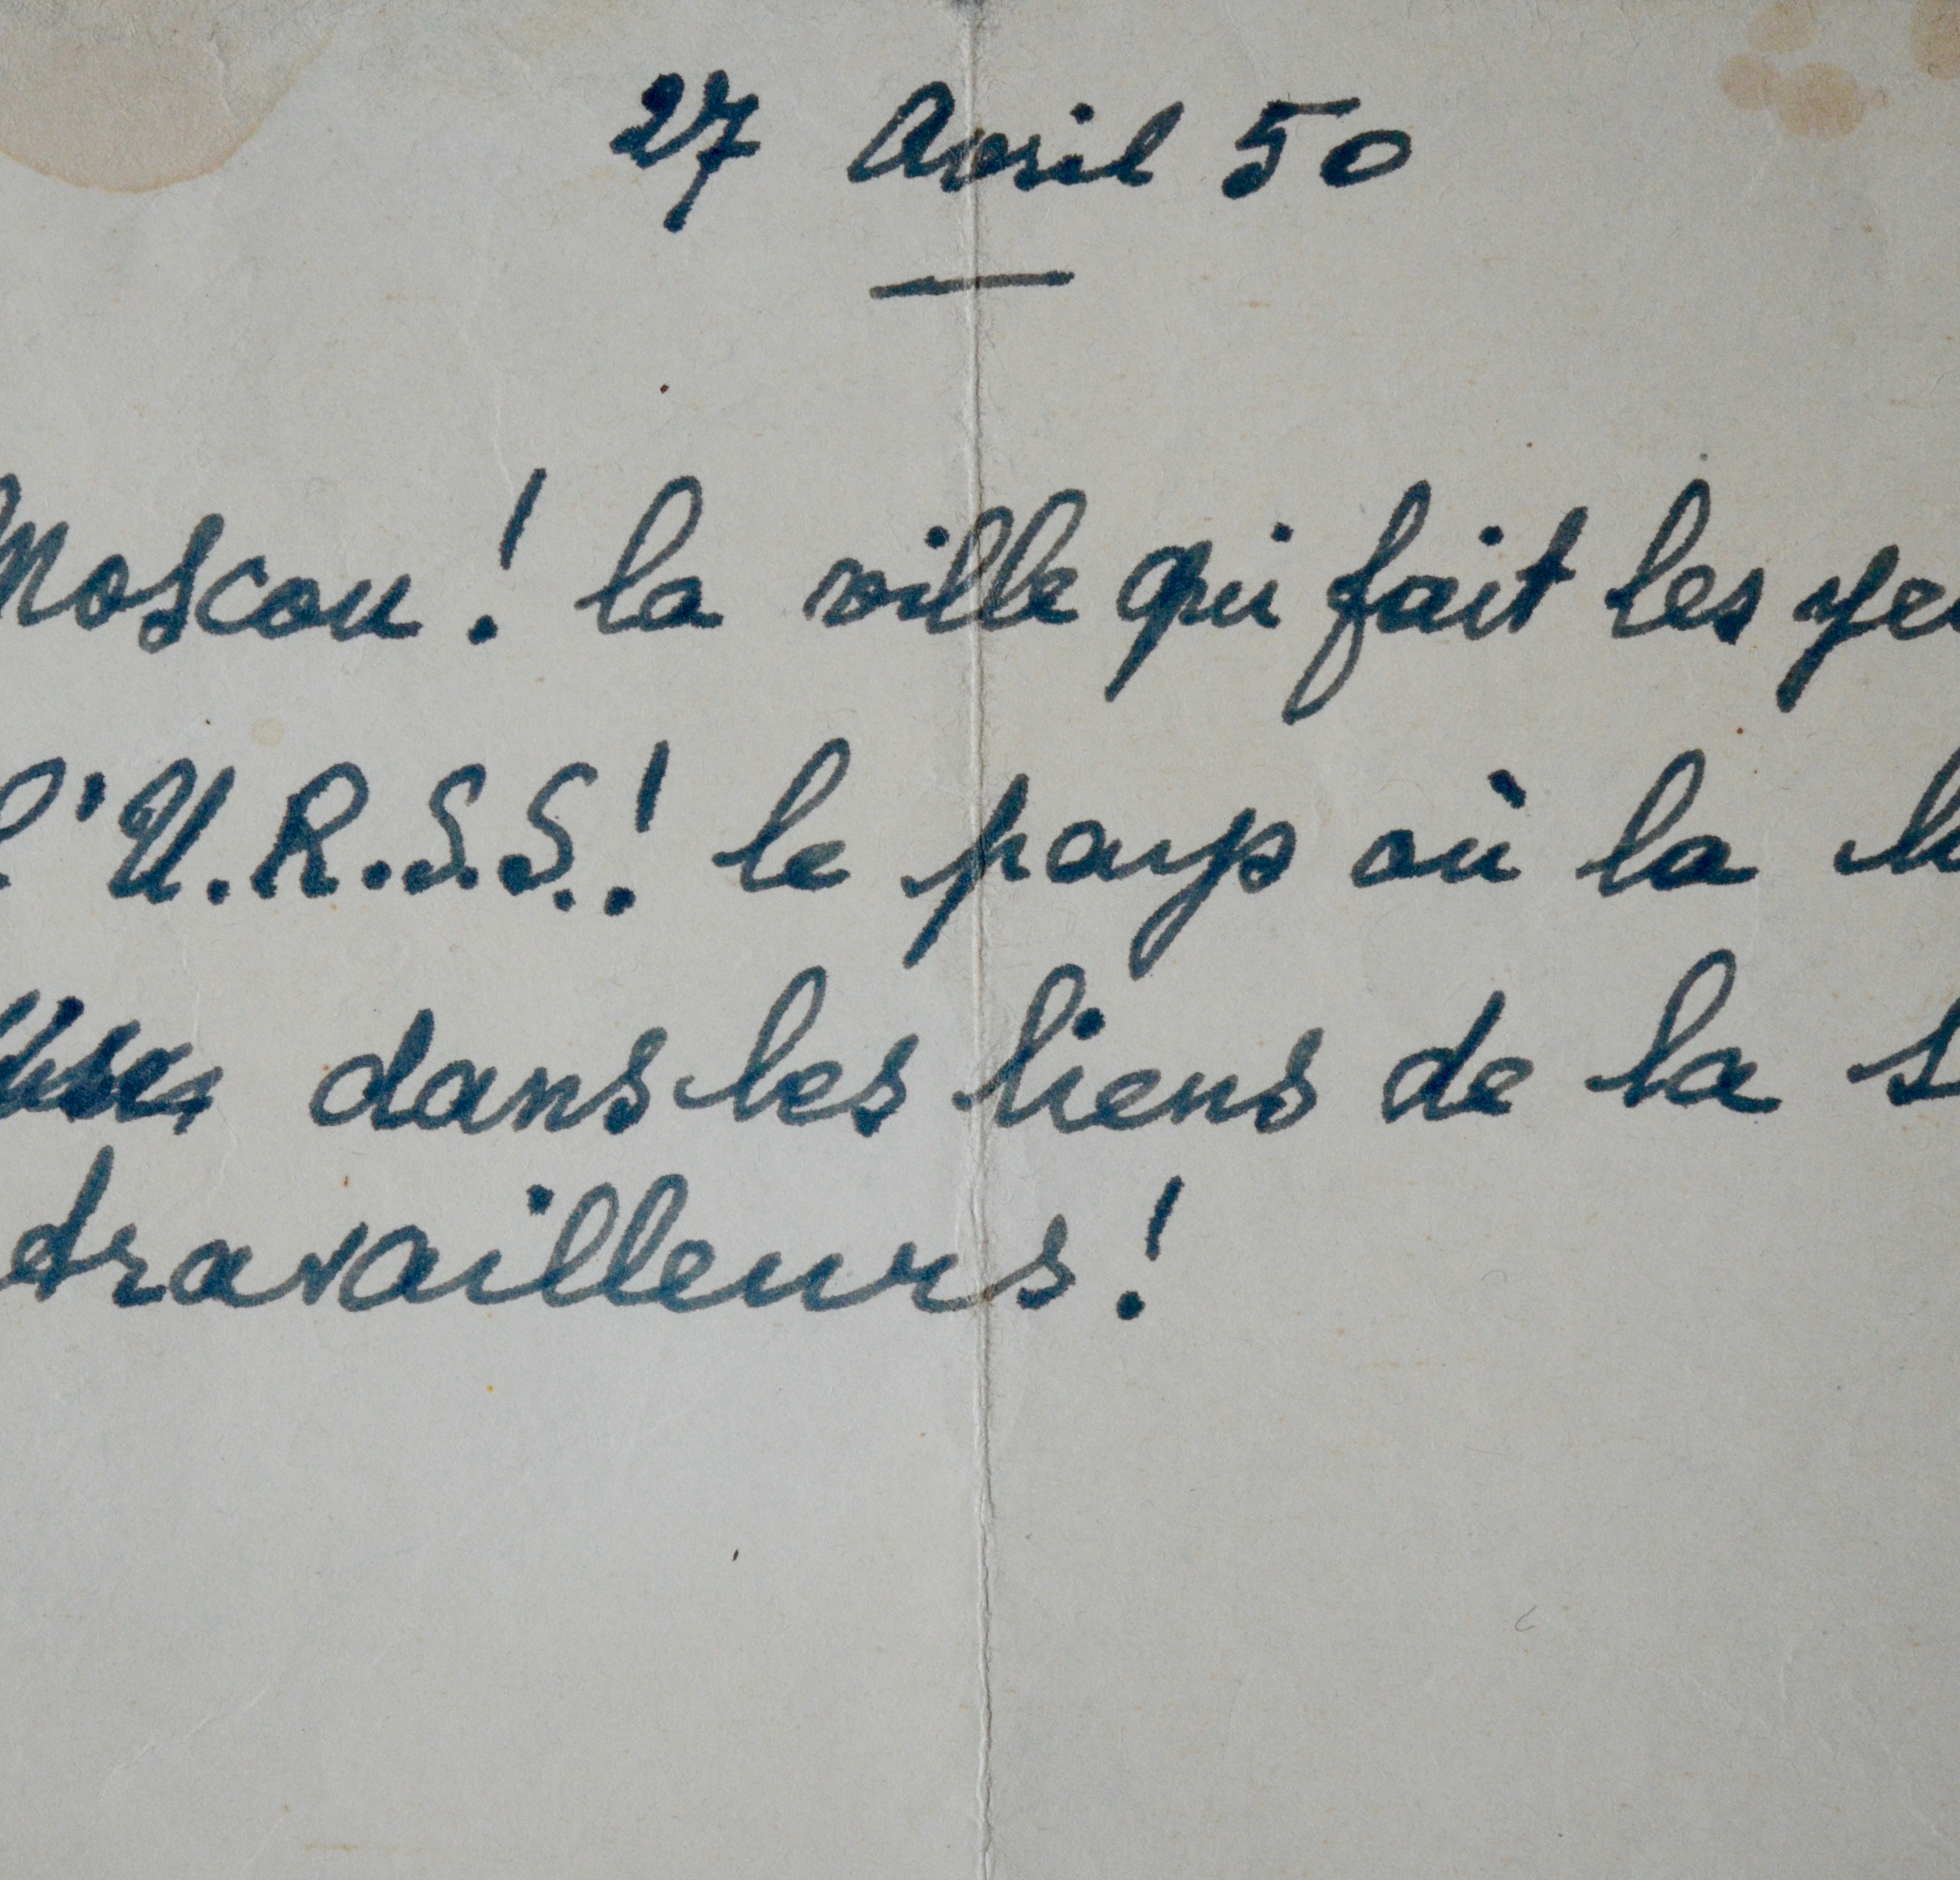 27 Avril 50
Moscou ! la ville qui fait les
l'U.R.S.S.! le pays où la
dans les liens de la
travailleurs !